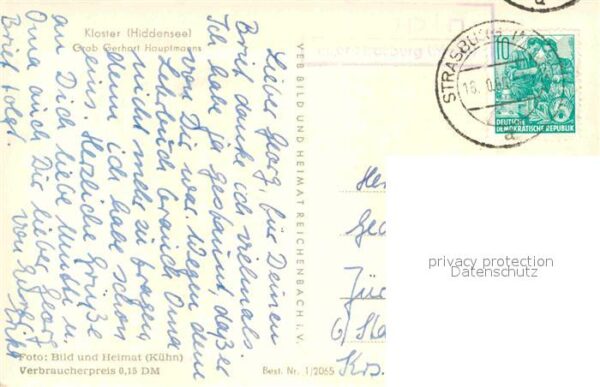 Kloster (Hiddensee)
Grab Gerhart Hauptmanns
Lieber Georg, für Deinen
Brief danke ich vielmals
Ich habe ja gestaunt, daß er
von Dir war. Wegen dem
Lehrbuch brauch Oma
nicht mehr zu fragen,
denn ich habe schon
eins. Herzliche Grüße
an Dich, liebe Mutti u.
Oma auch Die lieber Georg
von
Brief folgt.
VEB BILD UND HEIMAT REICHENBACH i. V.
Foto: Bild und Heimat (Kühn)
Verbraucherpreis 0,15 DM
Best. Nr. 1/2065
STRASBURG
10
DEUTSCHE
DEMOKRATISCHE REPUBLIK
a
privacy protection
Datenschutz
6/
Krs.